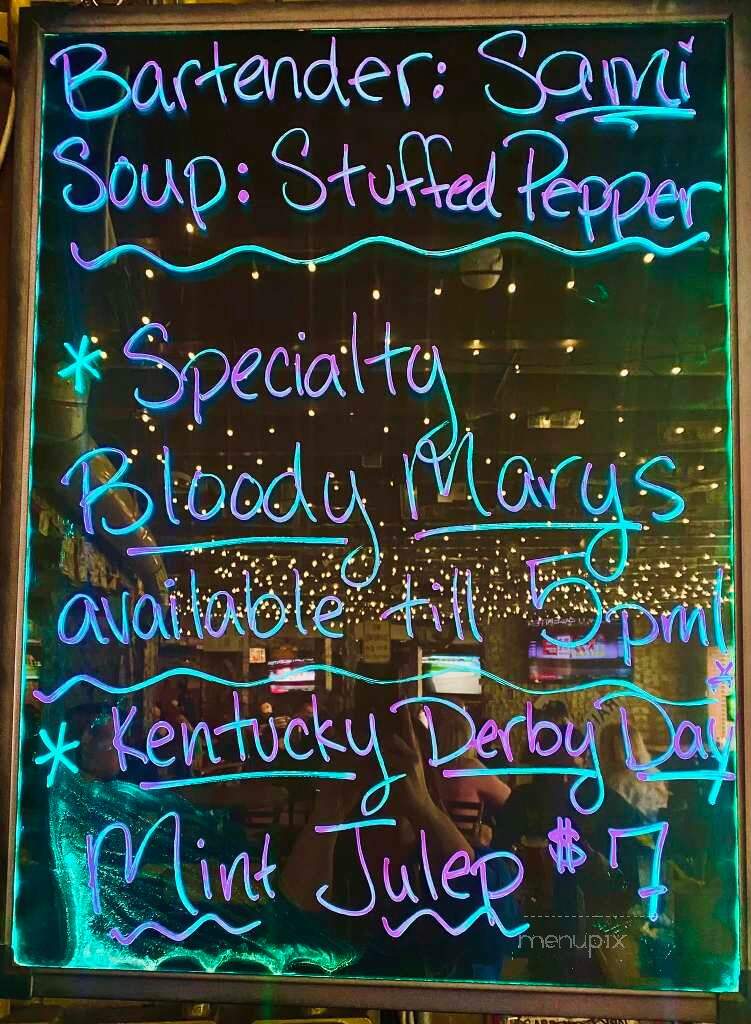 Bartender: Sami
Soup: Stuffed Pepper
* Specialty
Bloody Marys
available till 5pm!
* Kentucky Derby Day
Mint Julep $7
menupix